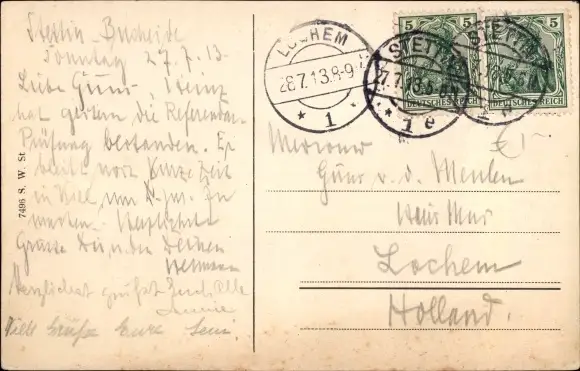 Stettin-Bucheide
Sonntag 27.7.13-
Liebe Guus, Heinz
hat gestern die Referendar
Prüfung bestanden. Er
bleibt noch kurze Zeit
in Kiel, um
warten.
Grüsse Dir u. den Deinen
Hermann
Herzlichst grüßt Euch Alle
Viele Grüße Eure
7496 S. W. St.
LOCHEM
28.7.13.8-9
* 1 *
STETTIN
27.7.13.5-6N
* 1 e
STETTIN
5 5
DEUTSCHES REICH
5 5
DEUTSCHES REICH
Mevrouw
Guus v. d. Meulen
Lochem
Holland.